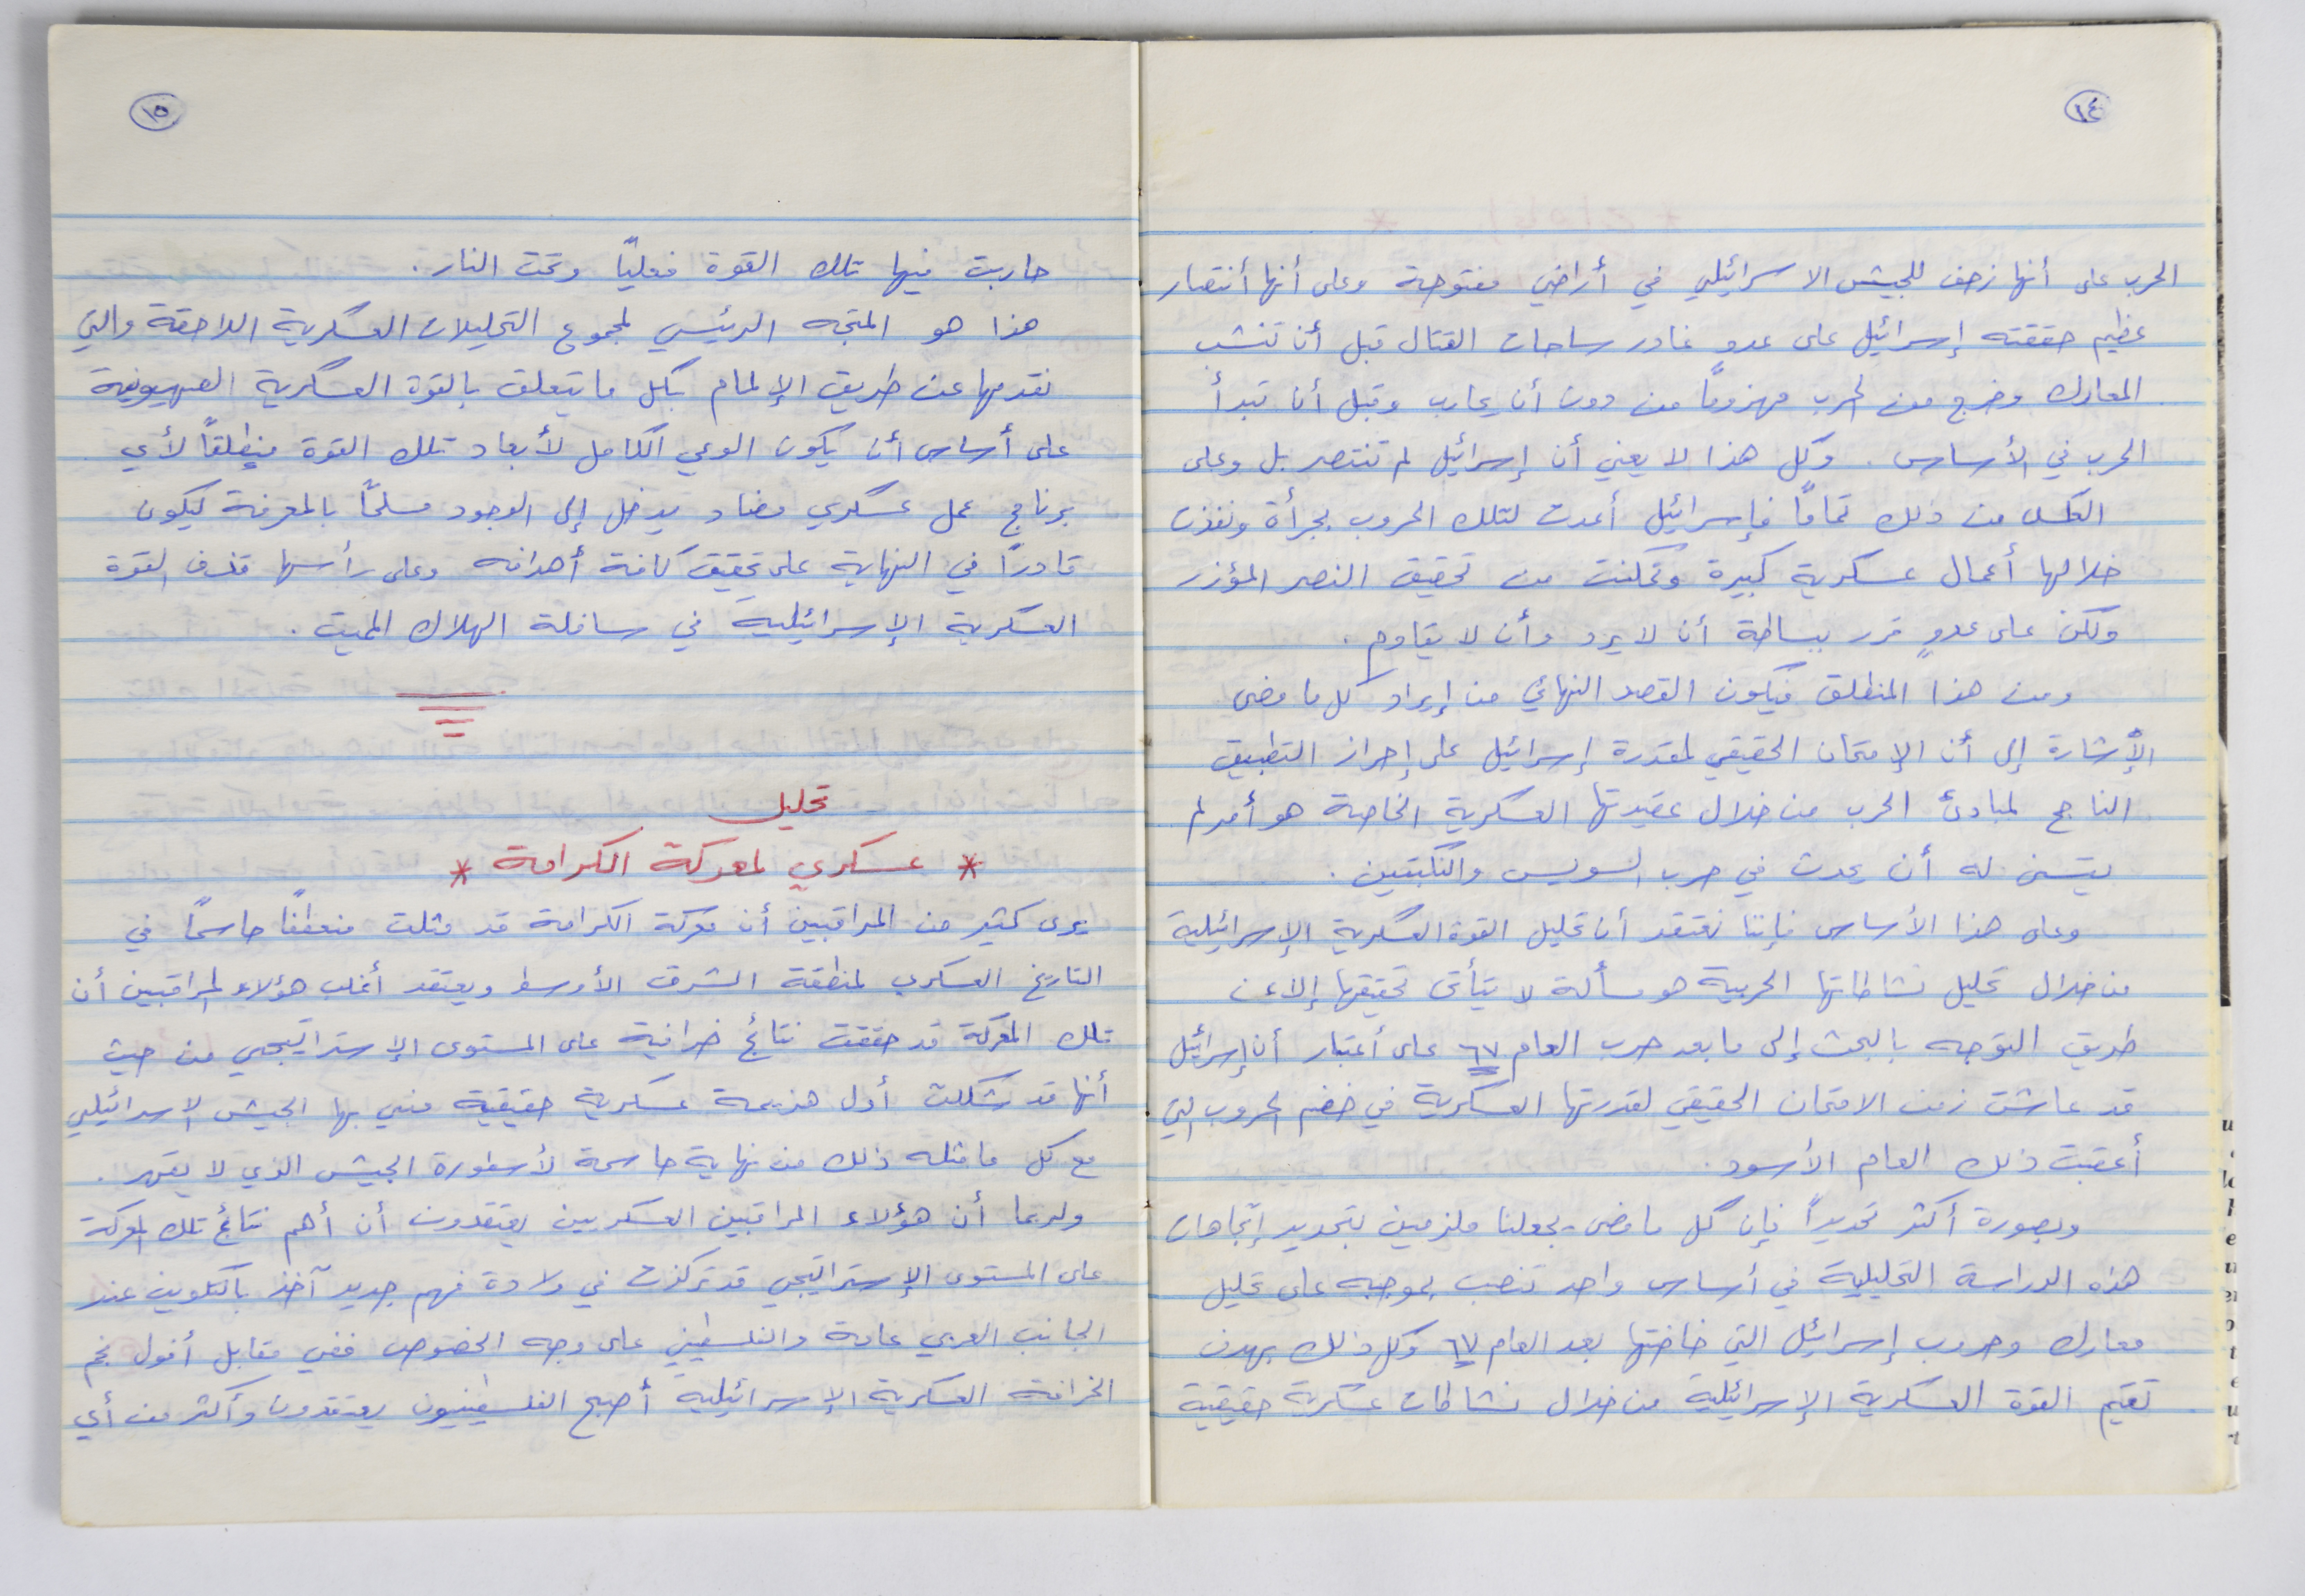 ١٤
الحرب على أنها زحف للجيش الاسرائيلي في أراضي مفتوحة وعلى أنها أنتصار
عظيم حققته إسرائيل على عدو غادر ساحات القتال قبل أن تنشب
المعارك وخرج من الحرب مهزوماً من دون أن يحارب وقبل أن تبدأ
الحرب في الأساس . وكل هذا لا يعني أن إسرائيل لم تنتصر بل وعلى
العكس من ذلك تماماً فإسرائيل أعدت لتلك الحروب بجرأة ونفذت
خلالها أعمال عسكرية كبيرة وتمكنت من تحقيق النصر المؤزر
ولكن على عدوٍ قرر ببساطة أن لا يرد وأن لا يقاوم .
ومن هذا المنطلق فيكون القصد النهائي من إيراد كل ما مضى
الإشارة إلى أن الإمتحان الحقيقي لمقدرة إسرائيل على إحراز التطبيق
الناجح لمبادئ الحرب من خلال عقيدتها العسكرية الخاصة هو أمر لم
يتسنى له أن يحدث في حرب السويس والنكبتين .
وعلى هذا الأساس فإننا نعتقد أن تحليل القوة العسكرية الإسرائيلية
من خلال تحليل نشاطاتها الحربية هو مسألة لا يتأتى تحقيقها إلا عن
طريق التوجه بالبحث إلى ما بعد حرب العام ٦٧ على أعتبار أن إسرائيل
قد عاشت زمن الامتحان الحقيقي لقدرتها العسكرية في خضم الحروب التي
أعقبت ذلك العام الأسود .
وبصورة أكثر تحديداً فإن كل ما مضى يجعلنا ملزمين بتحديد إتجاهات
هذه الدراسة التحليلية في أساس واحد تنصب بموجبه على تحليل
معارك وحروب إسرائيل التي خاضتها بعد العام ٦٧ وكل ذلك بهدف
تقيم القوة العسكرية الإسرائيلية من خلال نشاطات عسكرية حقيقية
١٥
حاربت فيها تلك القوة فعلياً وتحت النار .
هذا هو المتجه الرئيسي لمجموع التحليلات العسكرية اللاحقة والتي
نقدمها عن طريق الإلمام بكل ما يتعلق بالقوة العسكرية الصهيونية
على أساس أن يكون الوعي الكامل لأبعاد تلك القوة منطلقاً لأي
برنامج عمل عسكري مضاد يدخل إلى الوجود مسلحاً بالمعرفة ليكون
قادراً في النهاية على تحقيق كافة أهدافه وعلى رأسها قذف القوة
العسكرية الإسرائيلية في سافلة الهلاك المميت .
تحليل
* عسكري لمعركة الكرامة *
يرى كثير من المراقبين أن معركة الكرامة قد مثلت منعطفاً حاسماً في
التاريخ العسكري لمنطقة الشرق الأوسط ويعتقد أغلب هؤلاء المراقبين أن
تلك المعركة قد حققت نتائج خرافية على المستوى الإستراتيجي من حيث
أنها قد شكلت أول هزيمة عسكرية حقيقية مني بها الجيش الاسرائيلي
مع كل ما مثله ذلك من نهاية حاسمة لأسطورة الجيش الذي لا يقهر .
ولربما أن هؤلاء المراقبين العسكريين يعتقدون أن أهم نتائج تلك المعركة
على المستوى الإستراتيجي قد تركزت في ولادة فهم جديد آخذ بالتكوين عند
الجانب العربي عامة والفلسطيني على وجه الخصوص ففي مقابل أفول نجم
الخرافة العسكرية الإسرائيلية أصبح الفلسطينيون يعتقدون وأكثر من أي